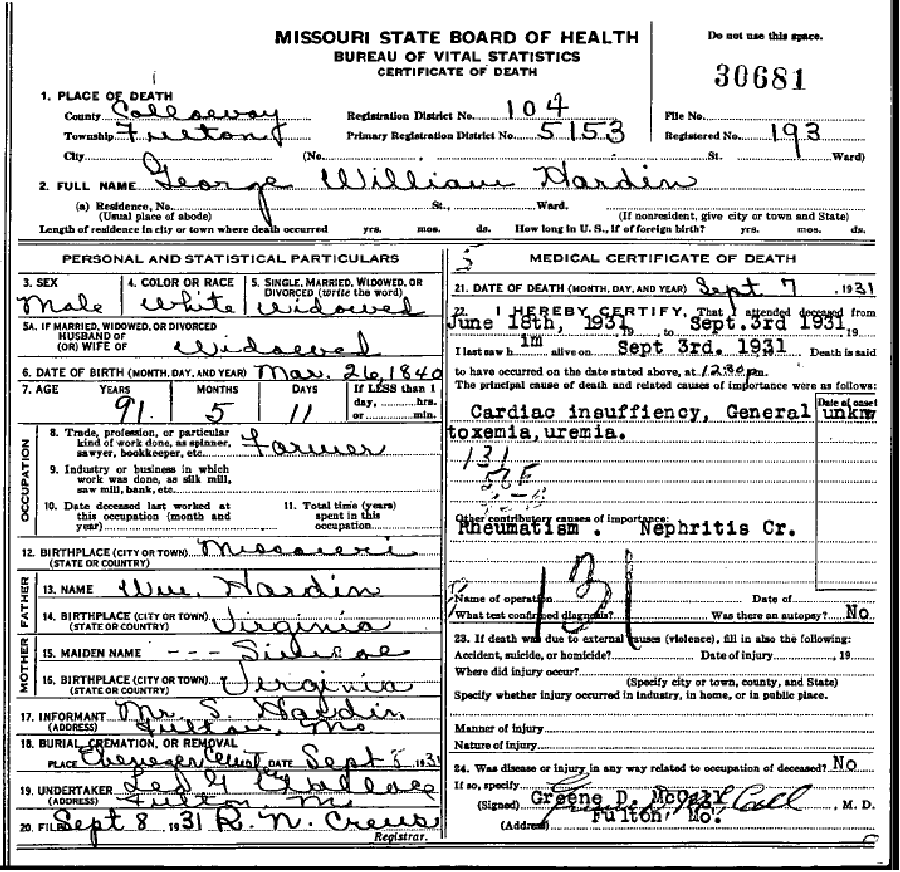 MISSOURI STATE BOARD OF HEALTH
BUREAU OF VITAL STATISTICS
CERTIFICATE OF DEATH
Do not use this space.
30681
1. PLACE OF DEATH
County Callaway Registration District No. 104 File No.
Township Fulton Primary Registration District No. 5153 Registered No. 193
City (No. St. Ward)
2. FULL NAME George William Hardin
(a) Residence, No. St., Ward.
(Usual place of abode) (If nonresident, give city or town and State)
Length of residence in city or town where death occurred yrs. mos. ds. How long in U. S., if of foreign birth? yrs. mos. ds.
PERSONAL AND STATISTICAL PARTICULARS
3. SEX 4. COLOR OR RACE 5. SINGLE, MARRIED, WIDOWED, OR
DIVORCED (write the word)
Male White Widowed
5A. IF MARRIED, WIDOWED, OR DIVORCED
HUSBAND OF
(OR) WIFE OF Widowed
6. DATE OF BIRTH (MONTH, DAY, AND YEAR) Mar. 26, 1840
7. AGE YEARS MONTHS DAYS If LESS than 1
day, hrs.
or min.
91. 5 11
OCCUPATION
8. Trade, profession, or particular
kind of work done, as spinner,
sawyer, bookkeeper, etc. Farmer
9. Industry or business in which
work was done, as silk mill,
saw mill, bank, etc.
10. Date deceased last worked at
this occupation (month and
year)
11. Total time (years)
spent in this
occupation.
12. BIRTHPLACE (CITY OR TOWN) Missouri
(STATE OR COUNTRY)
FATHER
13. NAME Wm. Hardin
14. BIRTHPLACE (CITY OR TOWN) Virginia
(STATE OR COUNTRY)
MOTHER
15. MAIDEN NAME - - -
16. BIRTHPLACE (CITY OR TOWN) Virginia
(STATE OR COUNTRY)
17. INFORMANT Mr S. Hardin,
(ADDRESS) Fulton, Mo
18. BURIAL, CREMATION, OR REMOVAL
PLACE Ebenezer DATE Sept 8 1931
19. UNDERTAKER Wallace
(ADDRESS) Fulton Mo
20. FILED Sept 8 1931 R. N. Crews
Registrar.
5
MEDICAL CERTIFICATE OF DEATH
21. DATE OF DEATH (MONTH, DAY, AND YEAR) Sept 7, 1931
22. I HEREBY CERTIFY, That I attended deceased from
June 18th, 1931 19 to Sept.3rd 1931 19
I last saw him alive on Sept 3rd. 1931 Death is said
to have occurred on the date stated above, at 12:30 pm.
The principal cause of death and related causes of importance were as follows:
Date of onset
Cardiac insuffiency, General unknw
toxemia, uremia.
131
Other contributory causes of importance:
Rheumatism . Nephritis Cr.
131
Name of operation Date of
What test confirmed diagnosis? Was there an autopsy? No
23. If death was due to external causes (violence), fill in also the following:
Accident, suicide, or homicide? Date of injury , 19
Where did injury occur?
(Specify city or town, county, and State)
Specify whether injury occurred in industry, in home, or in public place.
Manner of injury
Nature of injury
24. Was disease or injury in any way related to occupation of deceased? No
If so, specify
(Signed) Greene D. McCall, M. D.
(Address) Fulton, Mo.